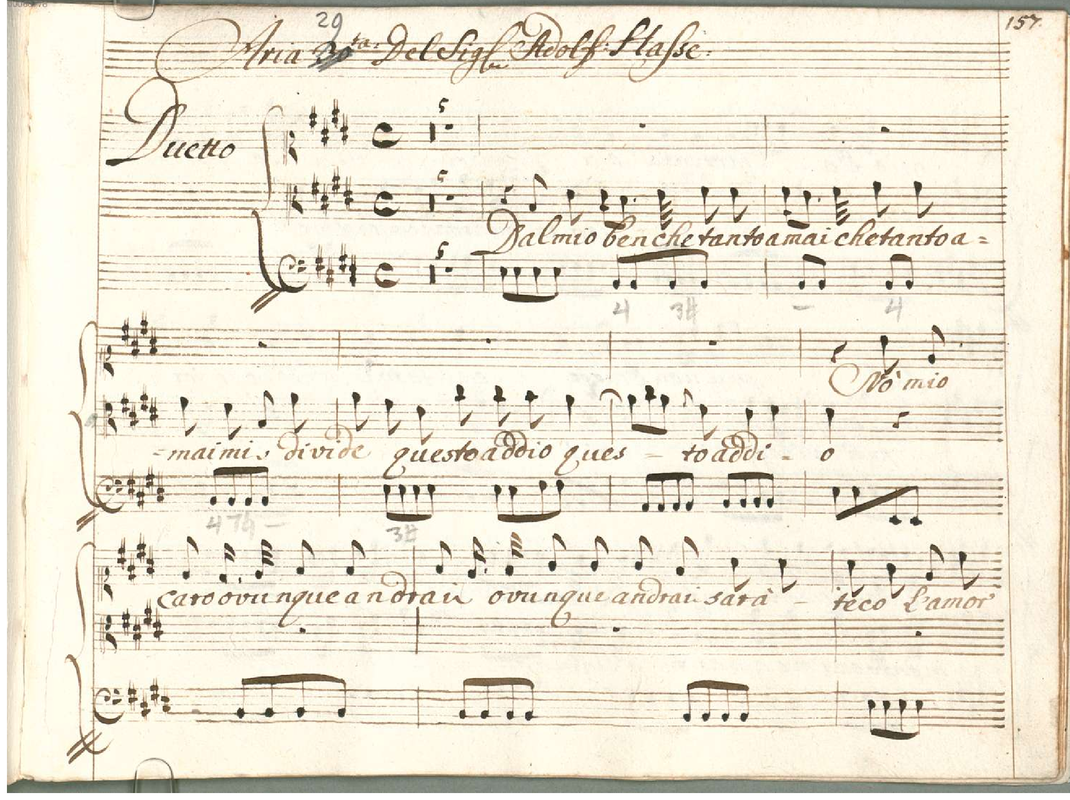 29
157.
Aria 30ta: Del Sigre Adolf: Hasse:
Duetto
5
5
Dal mio ben che tanto amai che tanto a =
5
4 3# - 4
Nò mio
= mai mi divide questo addio ques = to addi - o
4 7♮ - 3#
caro ovunque andrai ovunque andrai sarà - teco l'amor